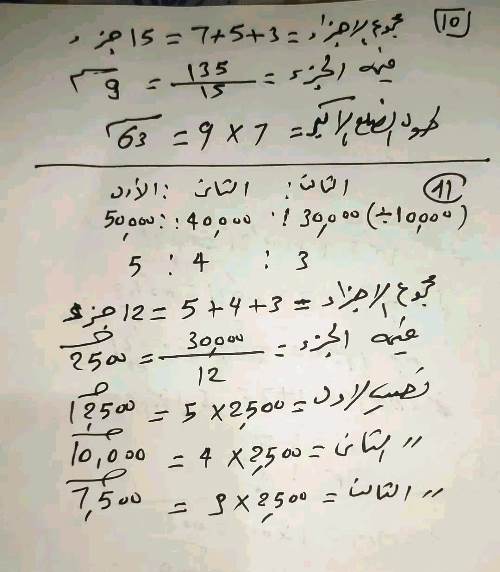 10 مجموع الاجزاء = 3+5+7 = 15 جزء
قيمة الجزء = 135/15 = 9 سم
طول الضلع الاكبر = 7 × 9 = 63 سم
11 الأول : الثانى : الثالث
50,000 : 40,000 : 30,000 (÷10,000)
5 : 4 : 3
مجموع الاجزاء = 3+4+5 = 12 جزء
قيمة الجزء = 30,000/12 = 2500
نصيب الاول = 2,500 × 5 = 12,500
〃 الثانى = 2,500 × 4 = 10,000
〃 الثالث = 2,500 × 3 = 7,500